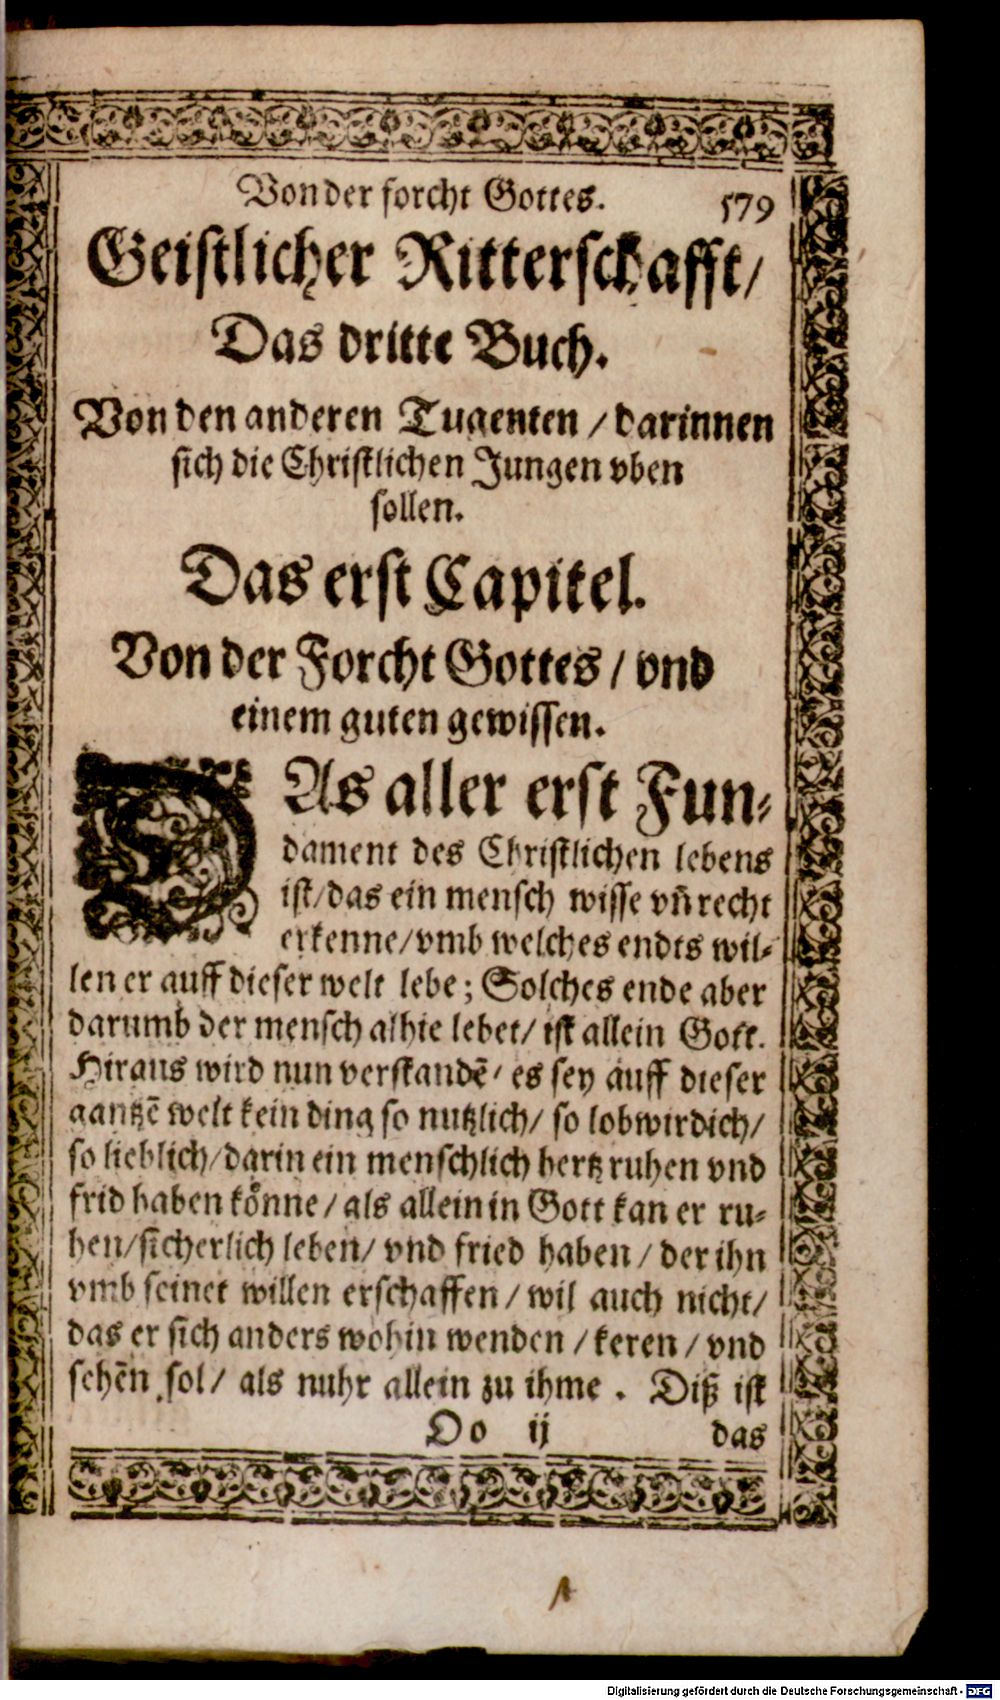 Von der forcht Gottes. 579
Geistlicher Ritterschafft/
Das dritte Buch.
Von den anderen Tugenten / darinnen
sich die Christlichen Jungen vben
sollen.
Das erst Capitel.
Von der Forcht Gottes / vnd
einem guten gewissen.
DAs aller erst Fun⸗
dament des Christlichen lebens
ist/das ein mensch wisse vn̄ recht
erkenne/vmb welches endts wil⸗
len er auff dieser welt lebe; Solches ende aber
darumb der mensch alhie lebet/ ist allein Gott.
Hiraus wird nun verstandē/ es sey auff dieser
gantzē welt kein ding so nutzlich/ so lobwirdich/
so lieblich/darin ein menschlich hertz ruhen vnd
frid haben koͤnne / als allein in Gott kan er ru⸗
hen/sicherlich leben/ vnd fried haben / der ihn
vmb seinet willen erschaffen / wil auch nicht/
das er sich anders wohin wenden / keren / vnd
sehēn sol/ als nuhr allein zu ihme . Diß ist
Oo ij das
Digitalisierung gefördert durch die Deutsche Forschungsgemeinschaft - DFG